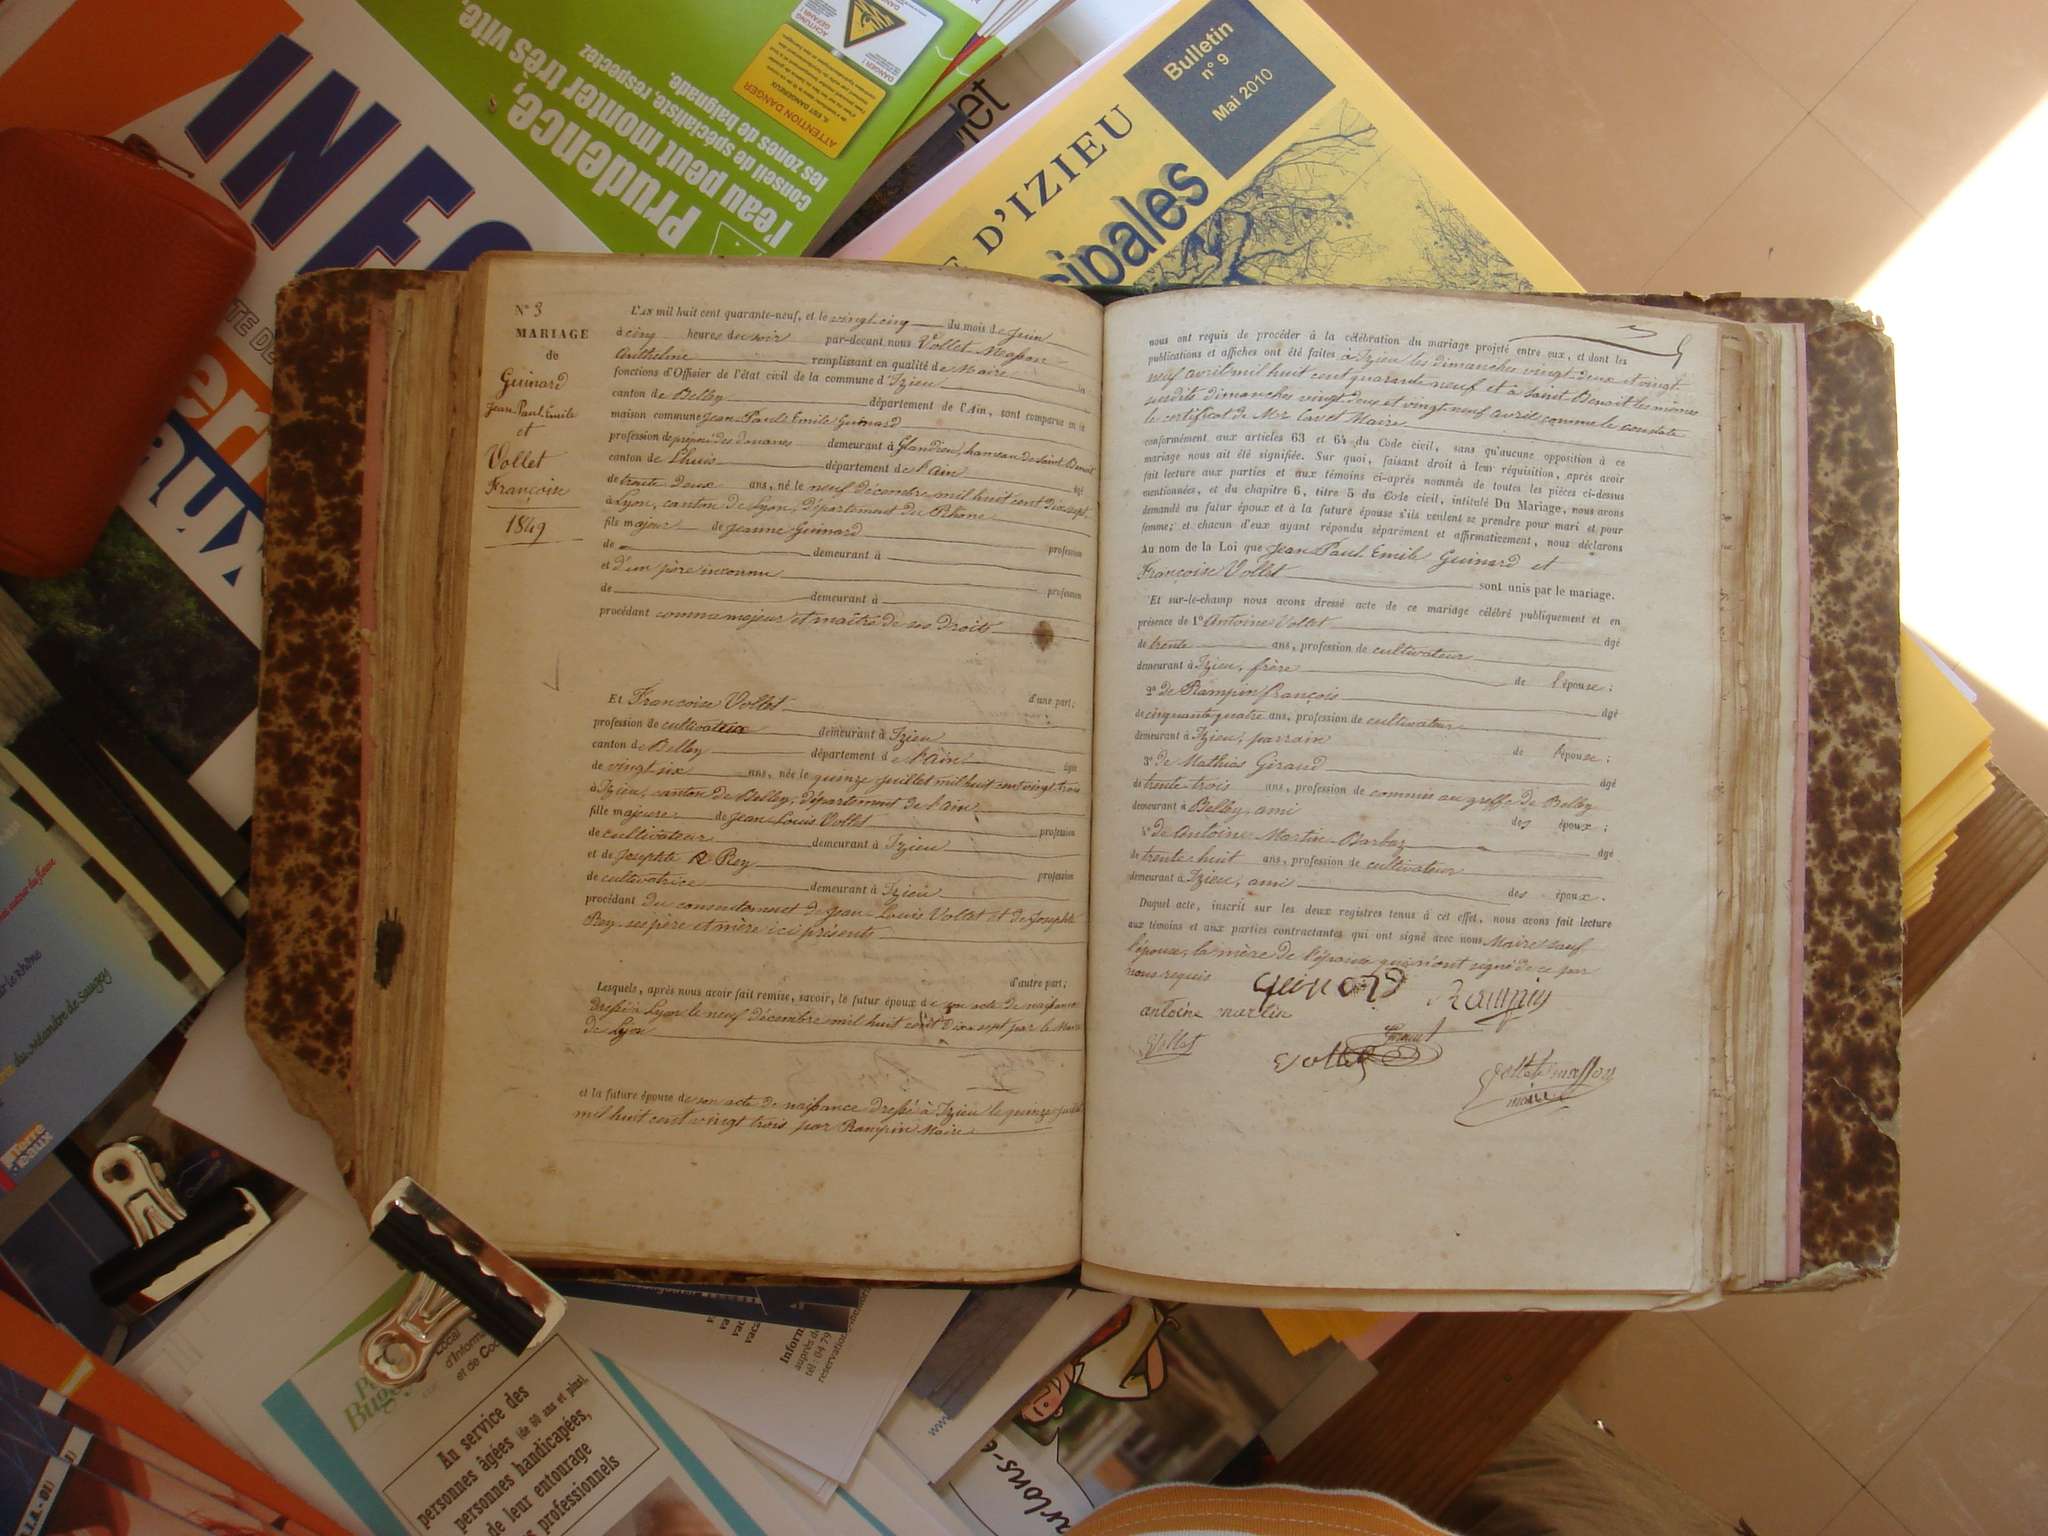 INFO
Prudence,
l'eau peut monter très vite,
conseil de spécialiste, respectez
les zones de baignade.
ATTENTION DANGER
Bulletin
n° 9
Mai 2010
D'IZIEU
cipales
N° 3
MARIAGE
de
Guinard
Jean Paul Emile
et
Vollet
Françoise
1849
L'AN mil huit cent quarante-neuf, et le vingt cinq du mois de Juin
à cinq heures du soir par-devant nous Vollet Masson
Anthelme remplissant en qualité de Maire les
fonctions d'Officier de l'état civil de la commune d'Izieu
canton de Belley département de l'Ain, sont comparus en la
maison commune Jean Paul Emile Guinard
profession de préposé des douanes demeurant à Glandieu, hameau de Saint Benoit
canton de Lhuis département de l'ain âgé
de trente deux ans, né le neuf décembre mil huit cent dix sept
à Lyon, canton de Lyon, département du Rhône
fils majeur de Jeanne Guinard profession
de demeurant à
et d'un père inconnu profession
de demeurant à
procédant comme majeur et maître de ses droits
d'une part;
Et Françoise Vollet
profession de cultivateur demeurant à Izieu
canton de Belley département de l'Ain âgée
de vingt six ans, née le quinze juillet mil huit cent vingt trois
à Izieu, canton de Belley, département de l'ain
fille majeure de Jean Louis Vollet profession
de cultivateur demeurant à Izieu
et de Josephte Rey profession
de cultivatrice demeurant à Izieu
procédant du consentement de Jean Louis Vollet et de Josephte
Rey ses père et mère ici présents
d'autre part;
Lesquels, après nous avoir fait remise, savoir, le futur époux de son acte de naissance
dressé à Lyon le neuf décembre mil huit cent dix sept par le Maire
de Lyon
et la future épouse de son acte de naissance dressé à Izieu le quinze juillet
mil huit cent vingt trois par Rampin Maire
nous ont requis de procéder à la célébration du mariage projeté entre eux, et dont les
publications et affiches ont été faites à Izieu les dimanches vingt deux et vingt
neuf avril mil huit cent quarante neuf et à Saint Benoit les mêmes
susdits dimanches vingt deux et vingt neuf avril comme le constate
le certificat de Mr Cavet Maire
conformément aux articles 63 et 64 du Code civil, sans qu'aucune opposition à ce
mariage nous ait été signifiée. Sur quoi, faisant droit à leur réquisition, après avoir
fait lecture aux parties et aux témoins ci-après nommés de toutes les pièces ci-dessus
mentionnées, et du chapitre 6, titre 5 du Code civil, intitulé Du Mariage, nous avons
demandé au futur époux et à la future épouse s'ils veulent se prendre pour mari et pour
femme; et chacun d'eux ayant répondu séparément et affirmativement, nous déclarons
Au nom de la Loi que Jean Paul Emile Guinard et
Françoise Vollet sont unis par le mariage.
Et sur-le-champ nous avons dressé acte de ce mariage célébré publiquement et en
présence de 1° Antoine Vollet âgé
de trente ans, profession de cultivateur
demeurant à Izieu, frère de l'épouse;
2° de Rampin françois âgé
de cinquante quatre ans, profession de cultivateur
demeurant à Izieu, parrain de l'épouse;
3° de Mathias Giraud âgé
de trente trois ans, profession de commis au greffe de Belley
demeurant à Belley, ami des époux;
4° de Antoine Martin-Barbaz âgé
de trente huit ans, profession de cultivateur
demeurant à Izieu, ami des époux.
Duquel acte, inscrit sur les deux registres tenus à cet effet, nous avons fait lecture
aux témoins et aux parties contractantes qui ont signé avec nous Maire sauf
l'épouse, la mère de l'épouse qui n'ont signé de ce par
nous requis
Guinard
Rampin
antoine martin
Vollet
Vollet
Vollet Masson
maire
du Méandre de Saugey
Local
d'Inform
et de Coo
Bugey
Au service des
personnes âgées (de 60 ans et plus),
personnes handicapées,
de leur entourage
professionnels
Inform
auprès de
tél : 04 79
www